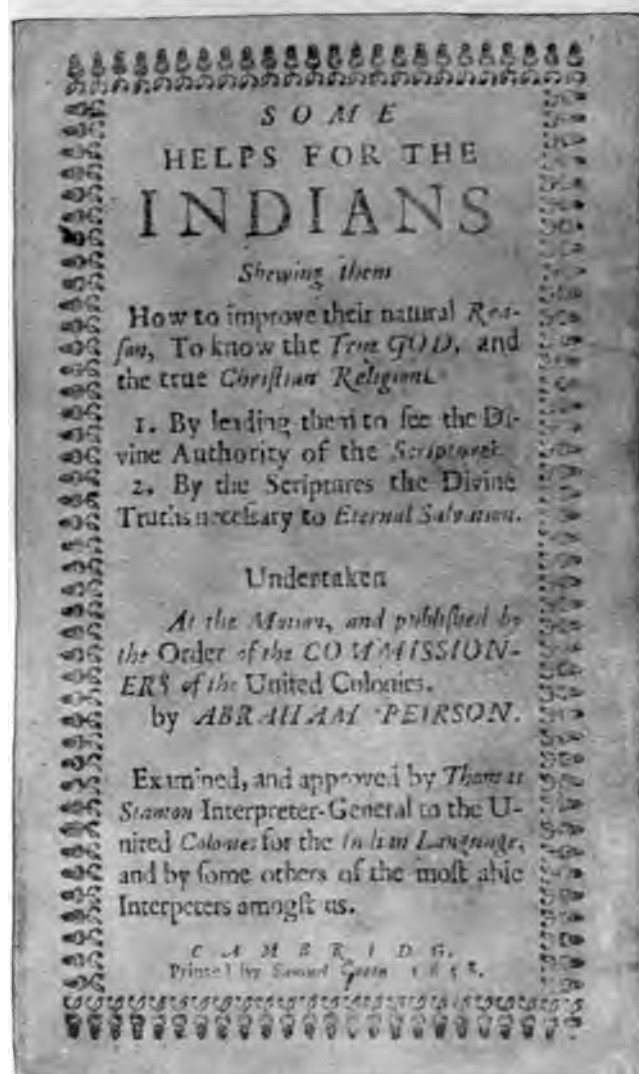 SOME
HELPS FOR THE
INDIANS
Shewing them
How to improve their natural Rea-
ſon, To know the True GOD, and
the true Chriſtian Religion.
1. By leading them to ſee the Di-
vine Authority of the Scriptures.
2. By the Scriptures the Divine
Truths neceſſary to Eternal Salvation.
Undertaken
At the Motion, and publiſhed by
the Order of the COMMISSION-
ERS of the United Colonies.
by ABRAHAM PEIRSON.
Examined, and approved by Thomas
Stanton Interpreter-General to the U-
nited Colonies for the Indian Language,
and by ſome others of the moſt able
Interpeters amogſt us.
CAMBRIDG.
Printed by Samuel Green 1658.